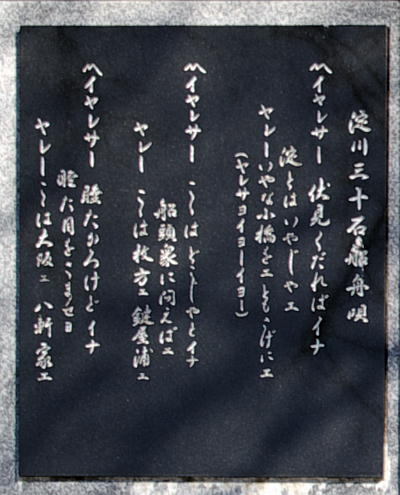 淀川三十石船舟唄
ヤレサー 伏見くだればイナ
淀とはいやじゃエ
ヤレーいやな小橋をエ ともさげにエ
(ヤレサヨイヨーイヨー)
ヤレサー こゝはどこじゃとイナ
船頭衆に問えばエ
ヤレー こゝは枚方エ 鍵屋浦エ
ヤレサー 眠たかろけどイナ
眠た目をさませヨ
ヤレーこゝは大阪エ 八軒家エ